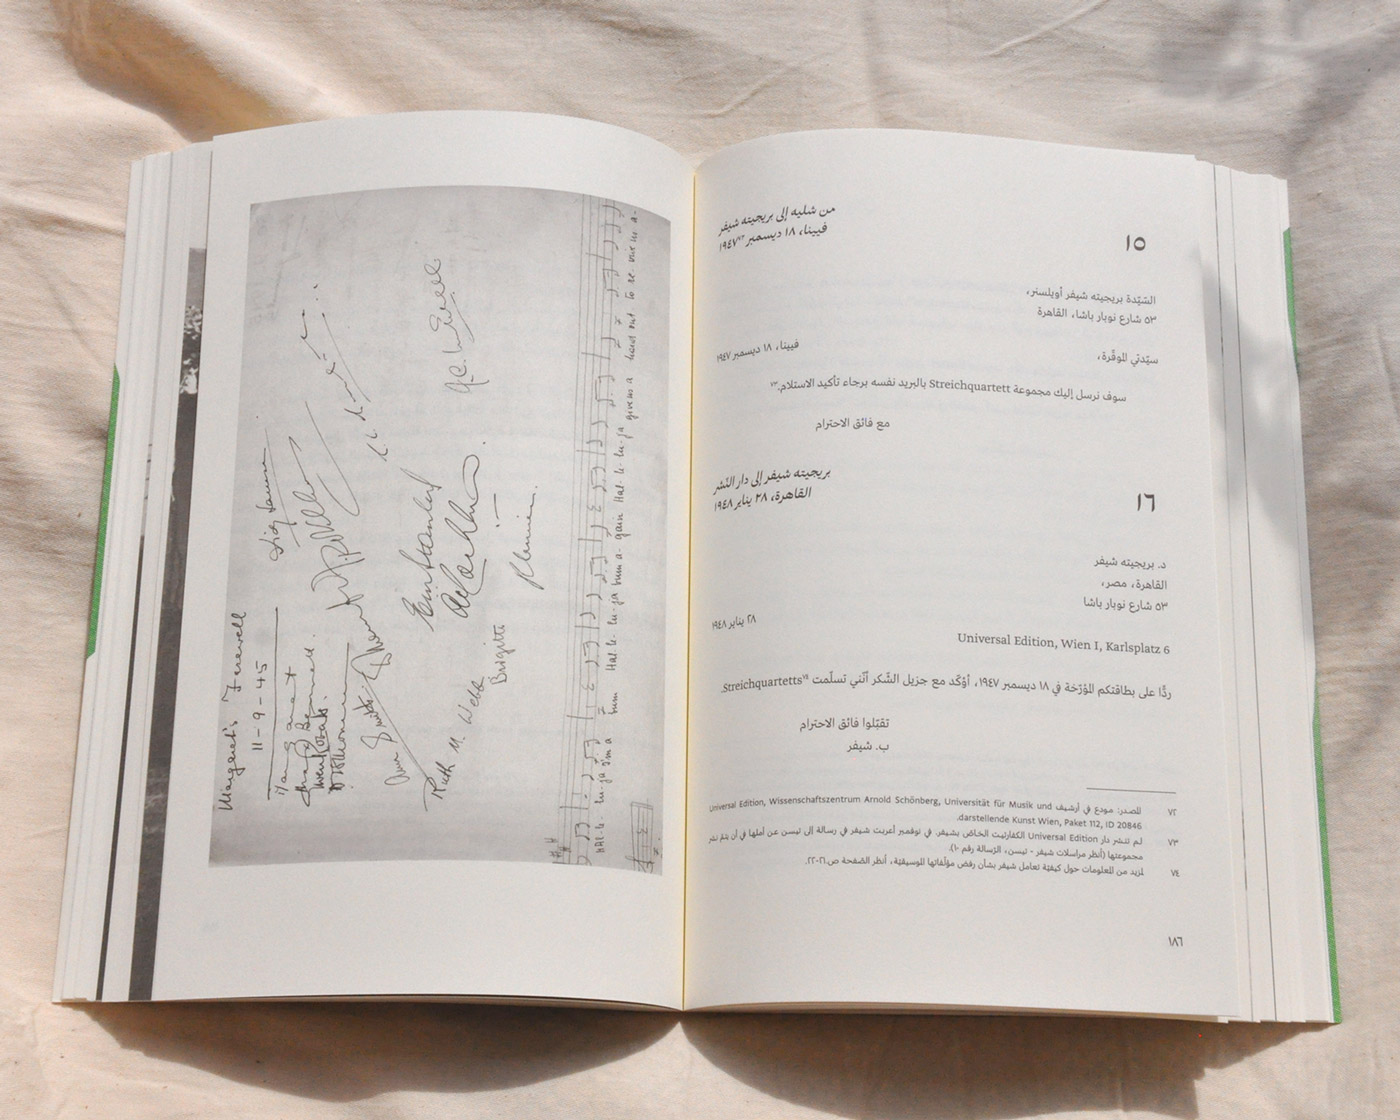 من شليه إلى بريجيته شيفر
فيينا، ١٨ ديسمبر ١٩٤٧⁷²
١٥
السّيّدة بريجيته شيفر أويلسنر،
٥٣ شارع نوبار باشا، القاهرة
فيينا، ١٨ ديسمبر ١٩٤٧
سيّدتي الموقّرة،
سوف نرسل إليك مجموعة Streichquartett بالبريد نفسه برجاء تأكيد الاستلام.⁷³
مع فائق الاحترام
بريجيته شيفر إلى دار النّشر
القاهرة، ٢٨ يناير ١٩٤٨
١٦
د. بريجيته شيفر
القاهرة، مصر،
٥٣ شارع نوبار باشا
٢٨ يناير ١٩٤٨
Universal Edition, Wien I, Karlsplatz 6
ردًّا على بطاقتكم المؤرّخة في ١٨ ديسمبر ١٩٤٧، أؤكّد مع جزيل الشّكر أنّني تسلّمت Streichquartetts⁷⁴.
تقبّلوا فائق الاحترام
ب. شيفر
٧٢ المصدر: مودع في أرشيف Universal Edition, Wissenschaftszentrum Arnold Schönberg, Universität für Musik und
darstellende Kunst Wien, Paket 112, ID 20846.
٧٣ لم تنشر دار Universal Edition الكفارتيت الخاصّ بشيفر. في نوفمبر أعربت شيفر في رسالة إلى تيسن عن أملها في أن يتمّ نشر
مجموعتها (أنظر مراسلات شيفر - تيسن، الرّسالة رقم ١٠).
٧٤ لمزيد من المعلومات حول كيفيّة تعامل شيفر بشأن رفض مؤلّفاتها الموسيقيّة، أنظر الصّفحة ص.٢١-٢٢.
١٨٦
Margaret's Farewell
11-9-45
Margaret
Ruth M. Webb
Brigitte
Hal-le-lu-ja I'm a bum Hal-le-lu-ja bum a-gain Hal-le-lu-ja give us a hand out to re-vive us a-